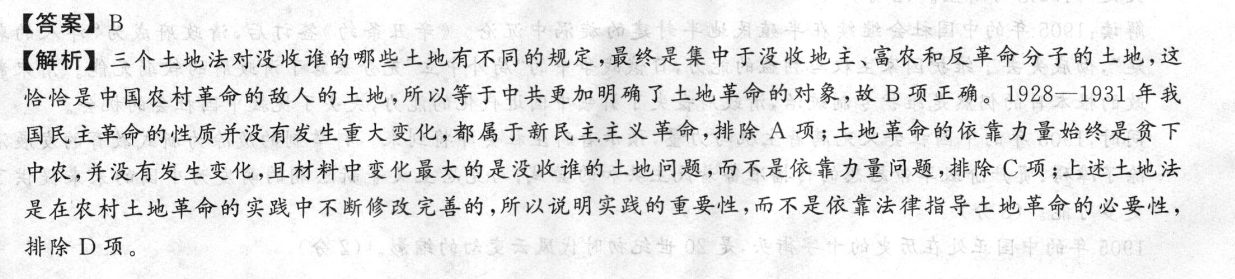 【答案】B
【解析】三个土地法对没收谁的哪些土地有不同的规定,最终是集中于没收地主、富农和反革命分子的土地,这
恰恰是中国农村革命的敌人的土地,所以等于中共更加明确了土地革命的对象,故 B 项正确。1928—1931 年我
国民主革命的性质并没有发生重大变化,都属于新民主主义革命,排除 A 项;土地革命的依靠力量始终是贫下
中农,并没有发生变化,且材料中变化最大的是没收谁的土地问题,而不是依靠力量问题,排除 C 项;上述土地法
是在农村土地革命的实践中不断修改完善的,所以说明实践的重要性,而不是依靠法律指导土地革命的必要性,
排除 D 项。